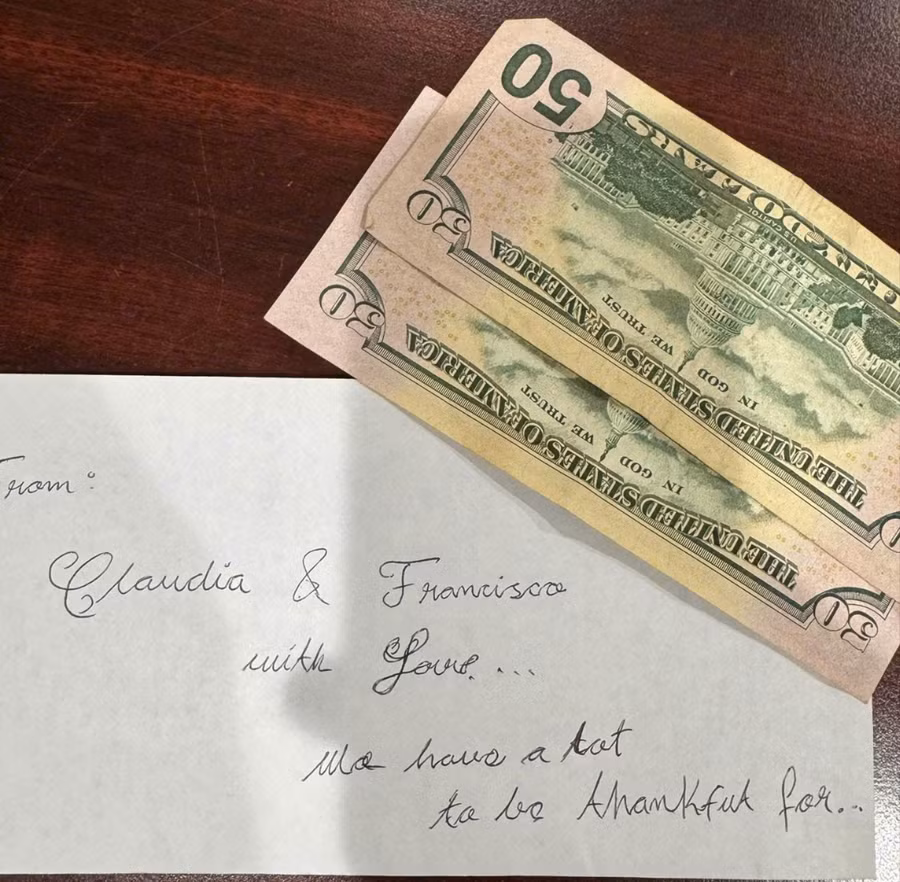 50
DOLLARS
U.S. CAPITOL
50
IN GOD
WE TRUST
THE UNITED STATES OF AMERICA
50
IN GOD
WE TRUST
THE UNITED STATES OF AMERICA
50
From:
Claudia & Francisco
with Love...
We have a lot
to be thankful for...